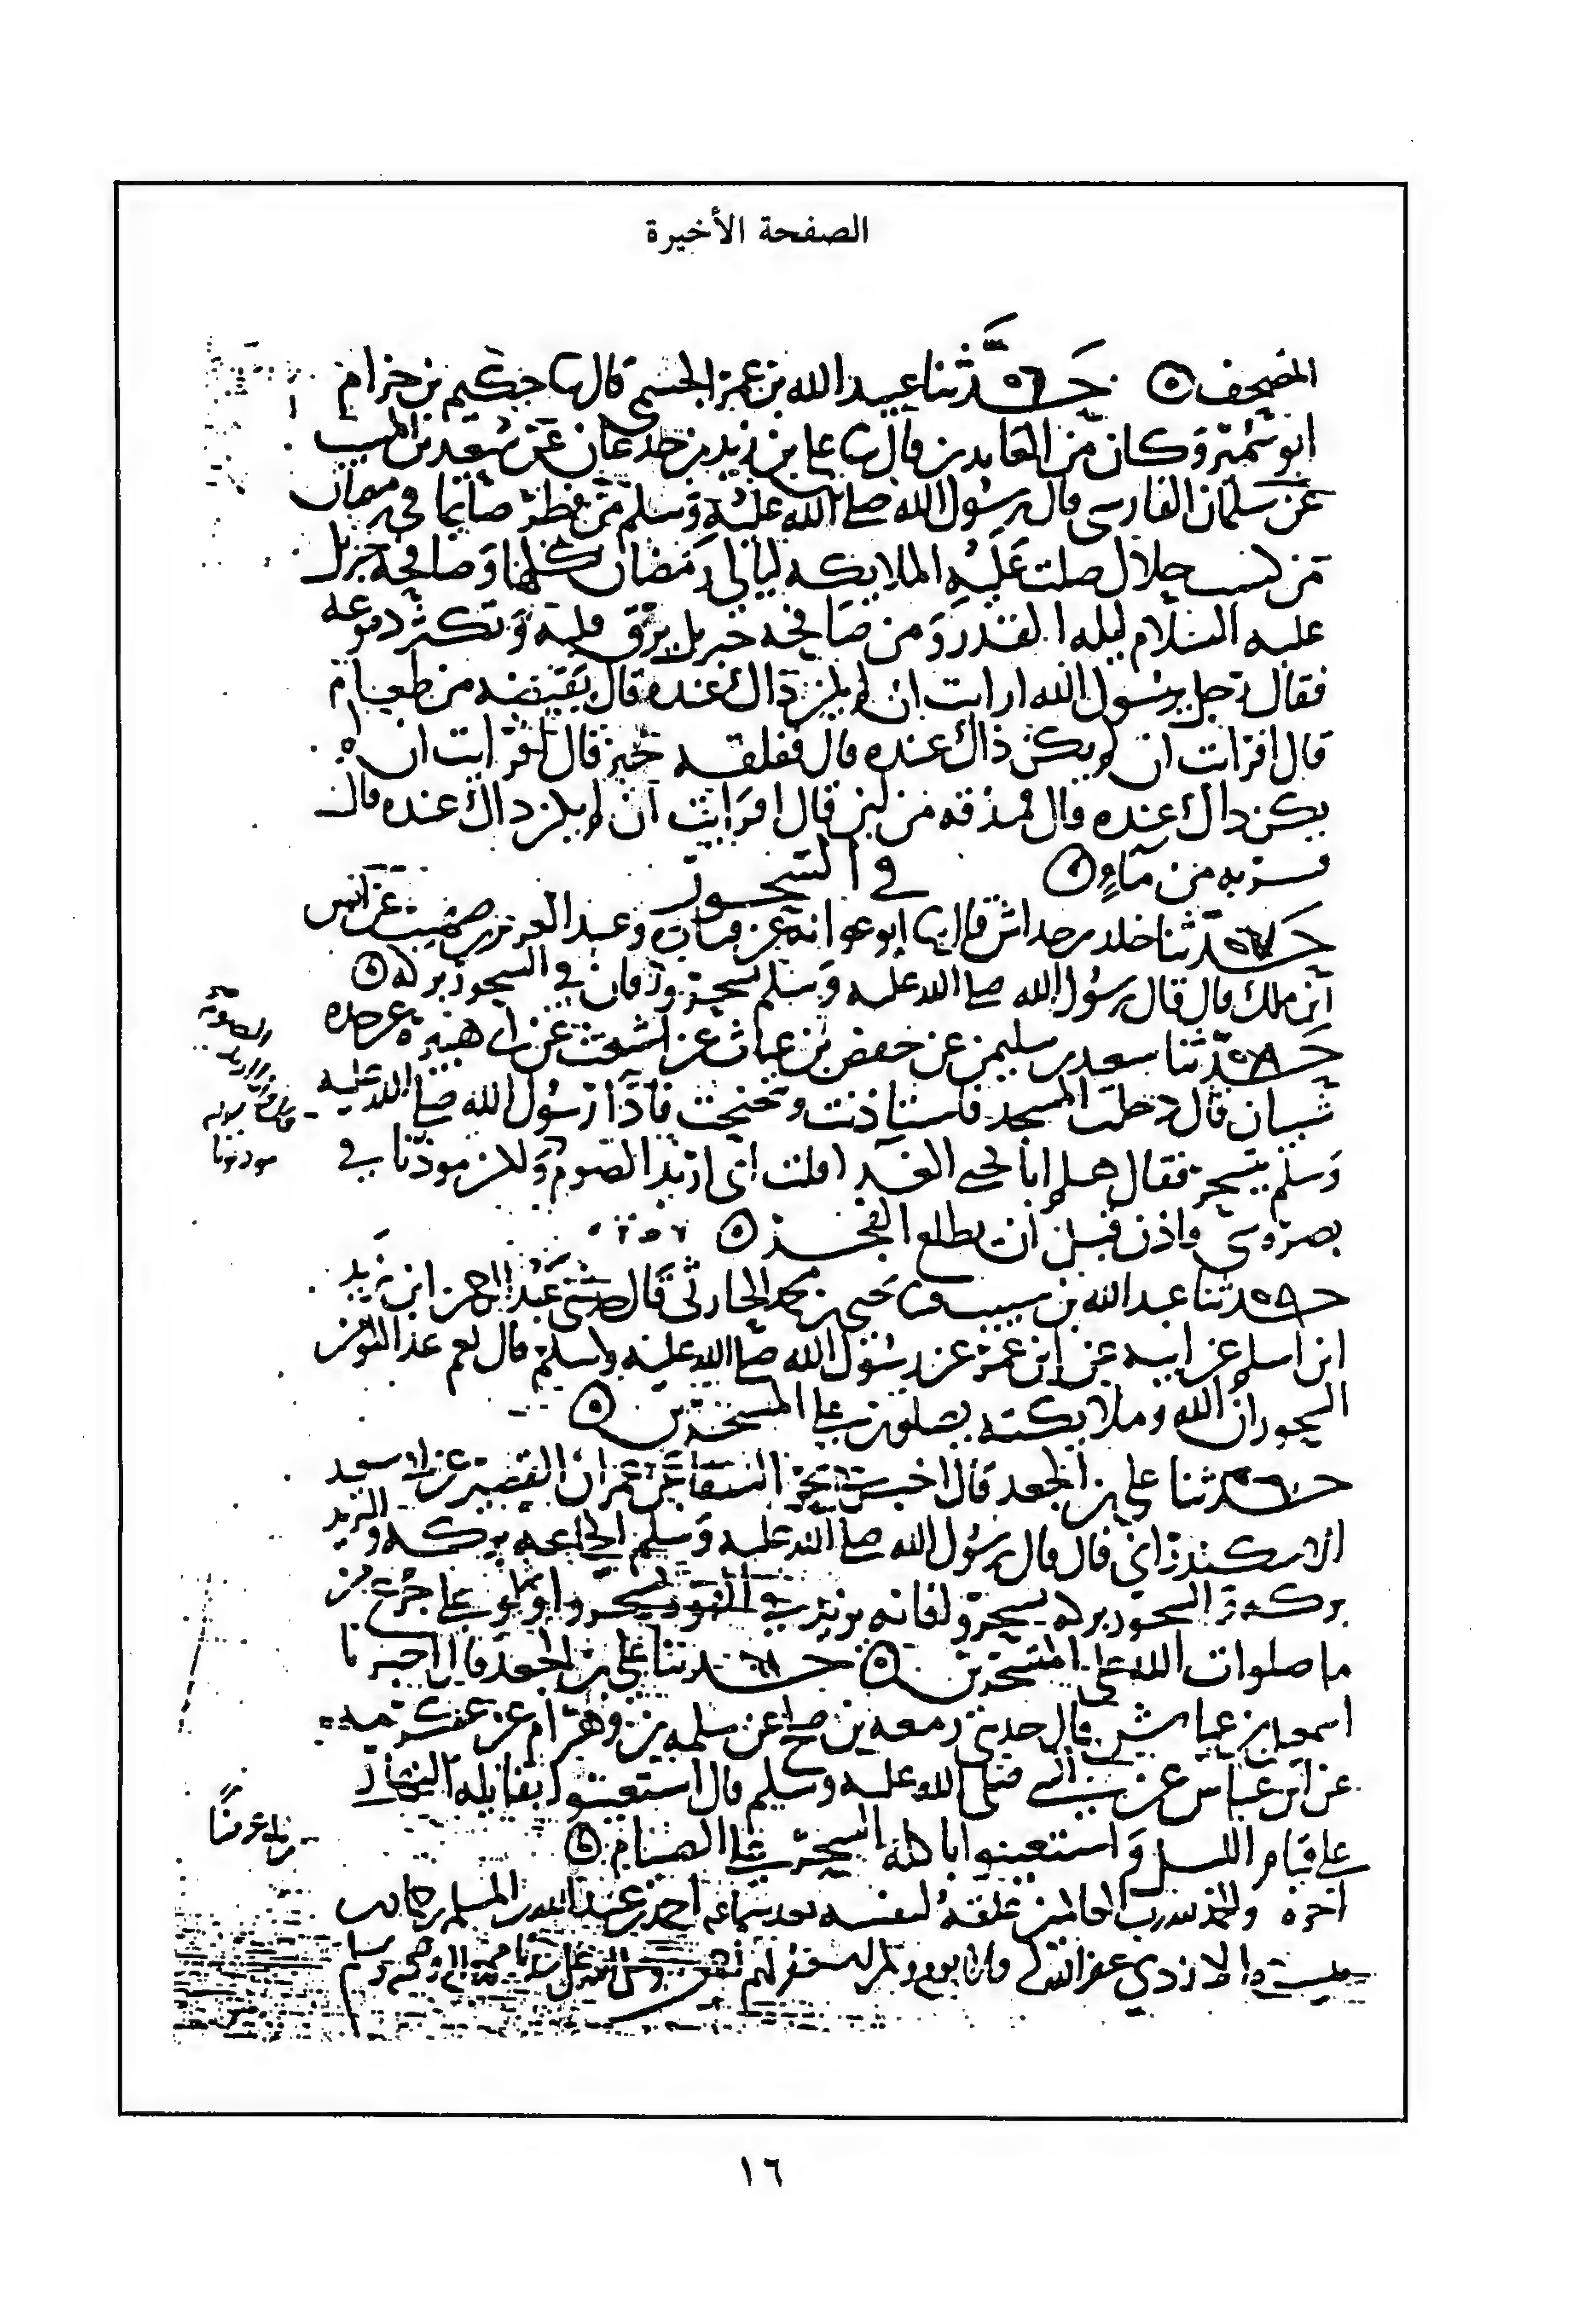 الصفحة الأخيرة
المصحف ٥ حدثنا عبيد الله بن عمر الجشمي قال ثنا حكيم بن خزام
ابو سمير وكان من العابدين قال ثنا علي بن زيد بن جدعان عن سعيد بن المسيب
عن سلمان الفارسي قال رسول الله صلى الله عليه وسلم من فطر صائما في رمضان
من كسب حلال صلت عليه الملايكه ليالي رمضان كلها وصافحه جبريل
عليه السلام ليله القدر ومن صافحه جبريل يرق قلبه وتكثر دموعه
فقال رجل يرسول الله ارايت ان لم يكن ذاك عنده قال بقبيضه من طعام
قال افرايت ان لم يكن ذاك عنده قال ففلقه خبز قال افرايت ان لم
يكن ذاك عنده قال فمذقه من لبن قال افرايت ان لم يكن ذاك عنده قال
فشربه من ماء ٥ في السحور
حدثنا خالد بن خداش قال ثنا ابو عوانه عن قتاده وعبد العزيز بن صهيب عن انس
ابن ملك قال قال رسول الله صلى الله عليه وسلم تسحروا فان في السحور بركه ٥
حدثنا سعيد بن سليمن عن حفص بن غياث عن اشعث عن ابي هبيرة عن جده
شيبان قال دخلت المسجد فاستاذنت وتنحنحت فاذا رسول الله صلى الله عليه
وسلم يتسحر فقال هلم ابا يحيى الغدا قلت اني اريد الصوم ولكن موذننا في
بصره شي واذن قبل ان يطلع الفجر ٥
حدثنا عبد الله بن شبيب ثنا يحيى بن محمد الحارثي قال حدثني عبد الرحمن ابن زيد
ابن اسلم عن ابيه عن ابن عمر عن رسول الله صلى الله عليه وسلم قال نعم غذا المومن
السحور ان الله وملايكته يصلون على المتسحرين ٥
حدثنا علي بن الجعد قال اخبرني بحر السقا عن عمران القصير عن ابي سعيد
الاسكندراني قال قال رسول الله صلى الله عليه وسلم الجماعه بركه والثريد
بركه والسحور بركه تسحروا فانه يزيد في القوه تسحروا ولو على جرع من
ما صلوات الله على المتسحرين ٥ حدثنا علي بن الجعد قال اخبرنا
اسمعيل بن عياش قال حدثني زمعه بن صلح عن سلمه بن وهرام عن عكرمه
عن ابن عباس عن النبي صلى الله عليه وسلم قال استعينوا بقايله النهار
على قيام الليل واستعينوا باكله السحر على الصيام ٥
اخره والحمد لله رب العالمين علقه لنفسه بعد سماعه احمد بن عبد الله بن المسلم بن
الازدي عفا الله
١٦